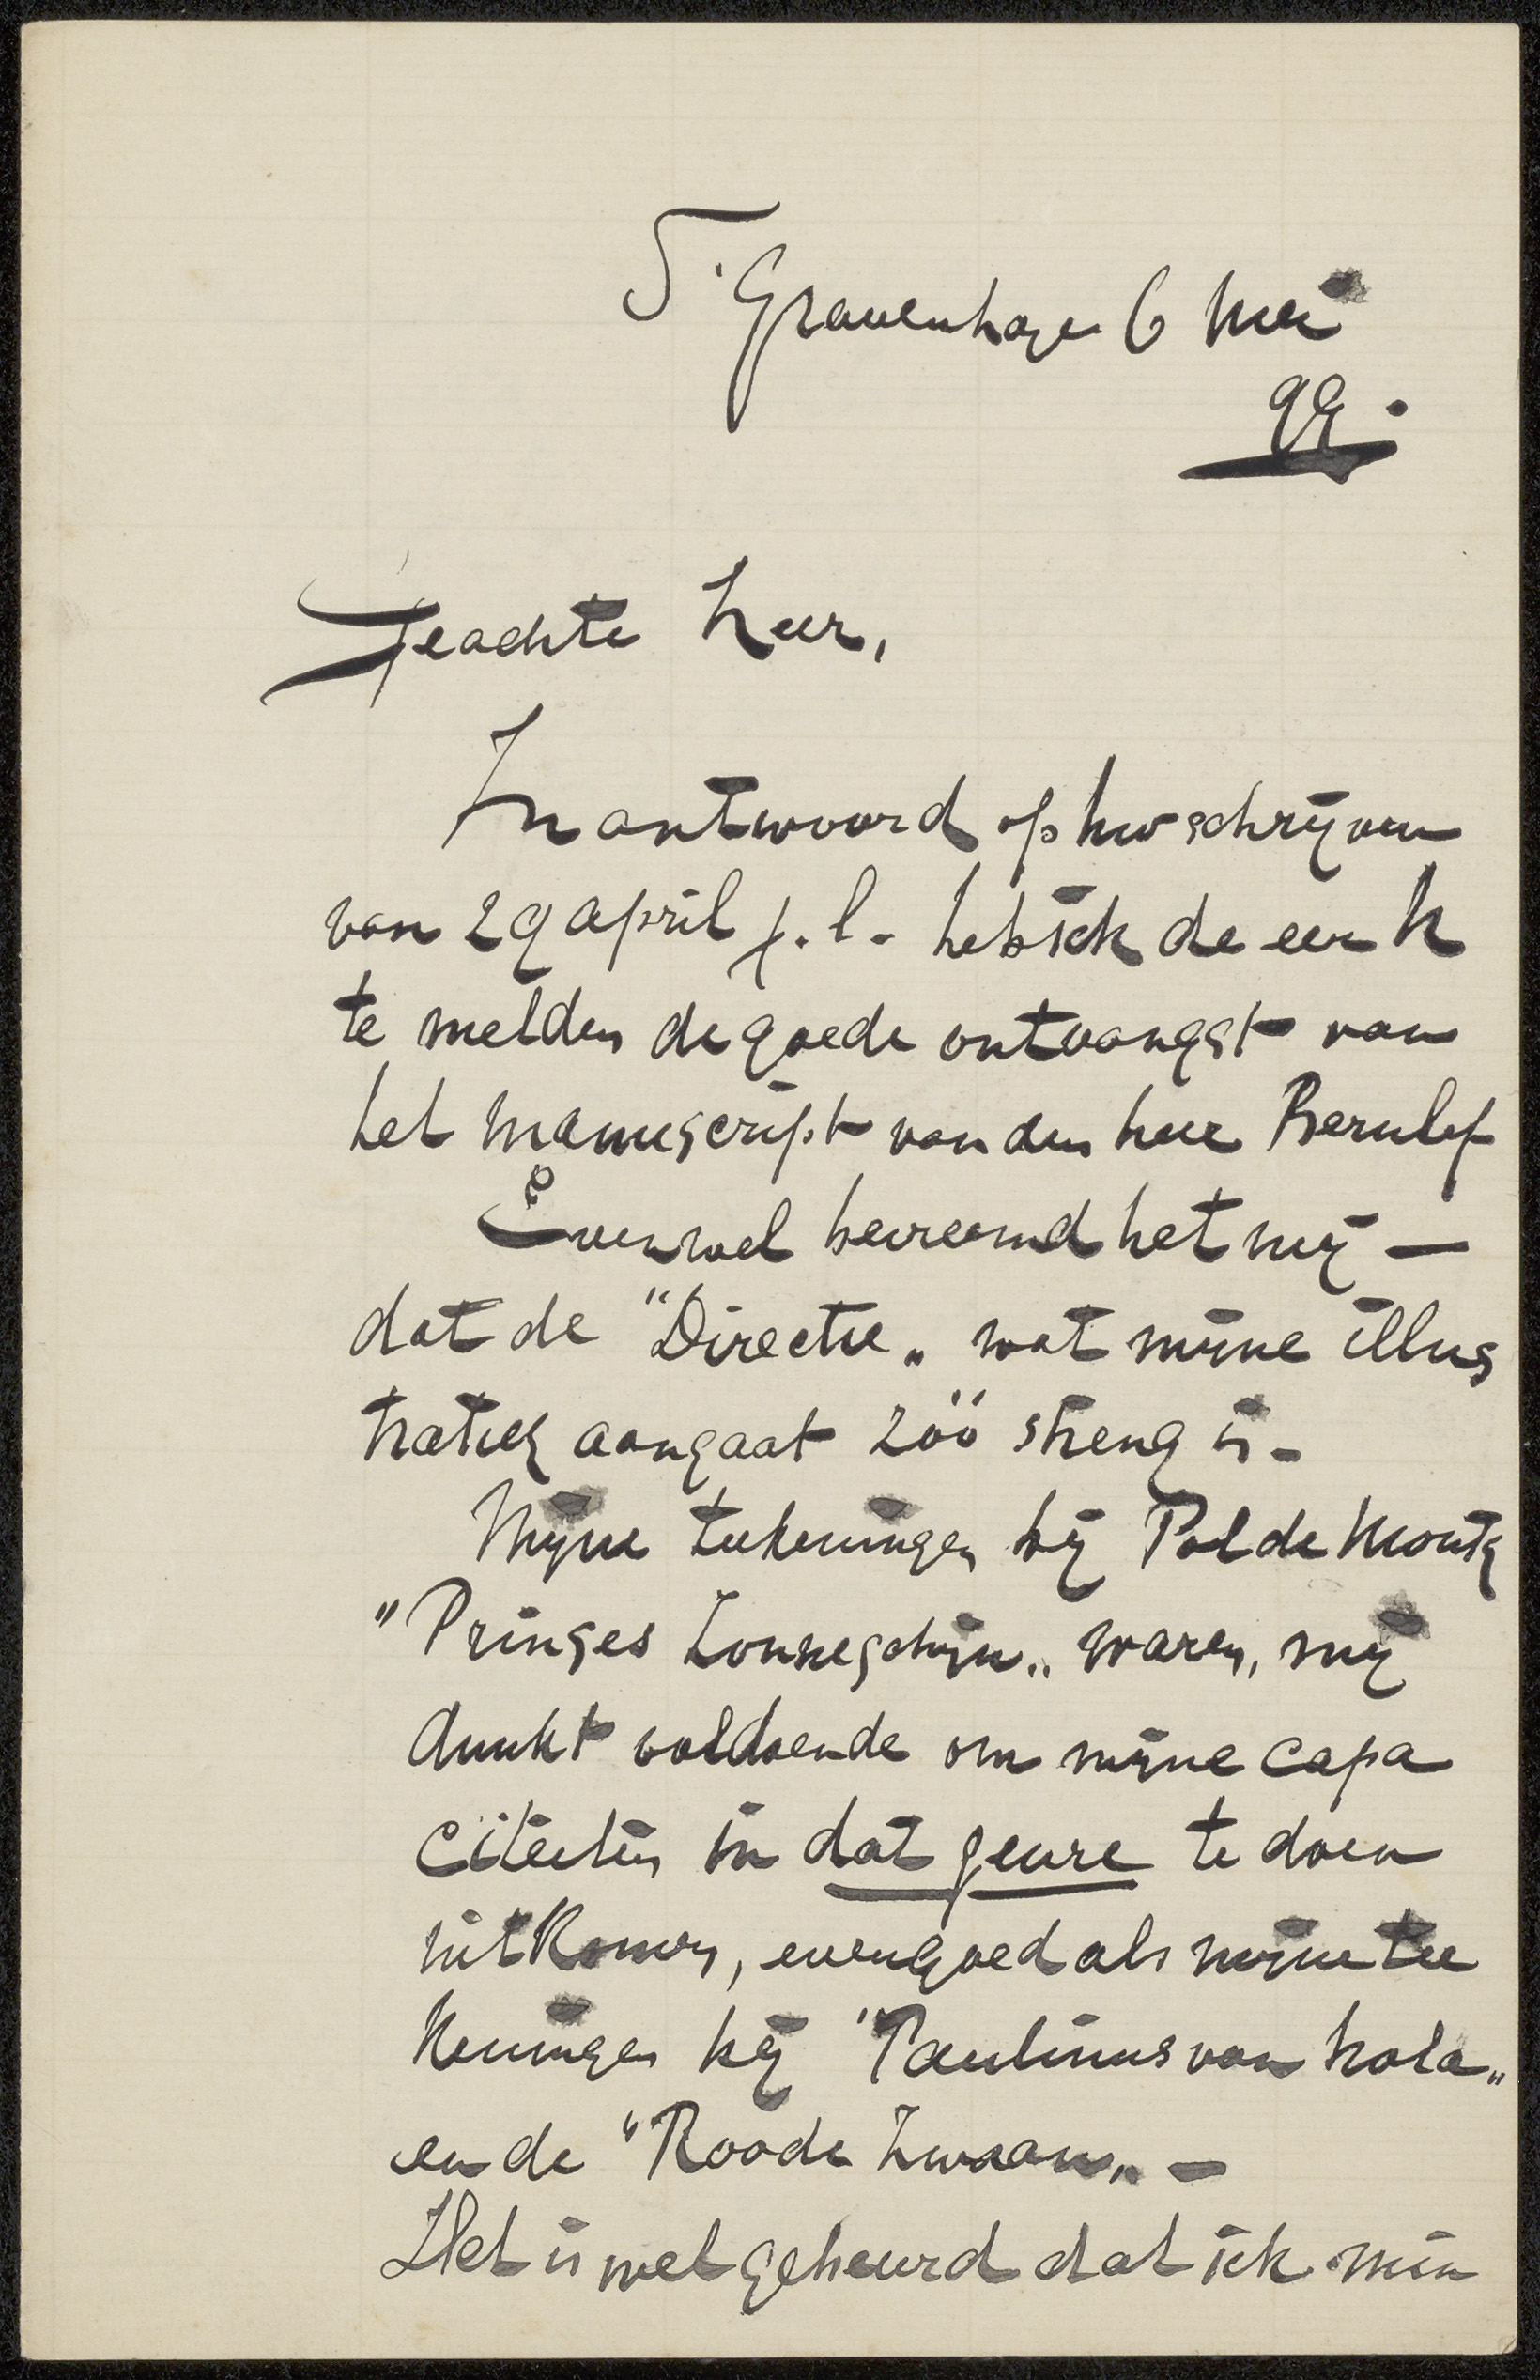 S'Gravenhage 6 Mei
99.
Geachte Heer,
In antwoord op Uw schrijven
van 29 april j.l. heb ick de eer U
te melden de goede ontvangst van
het Manuscript van den heer Bernlef
Evenwel bevreemd het mij —
dat de "Directie„ wat mijne illus
traties aangaat zóó streng is -
Mijne teekeningen bij Pol de Monts
"Prinses Zonneschijn„ waren, mij
dunkt voldoende om mijne capa
citeiten in dat genre te doen
uitkomen, evengoed als mijne tee
keningen bij "Paulinus van Nola„
en de "Roode Zwaan„ —
Het is wel gebeurd dat ick min